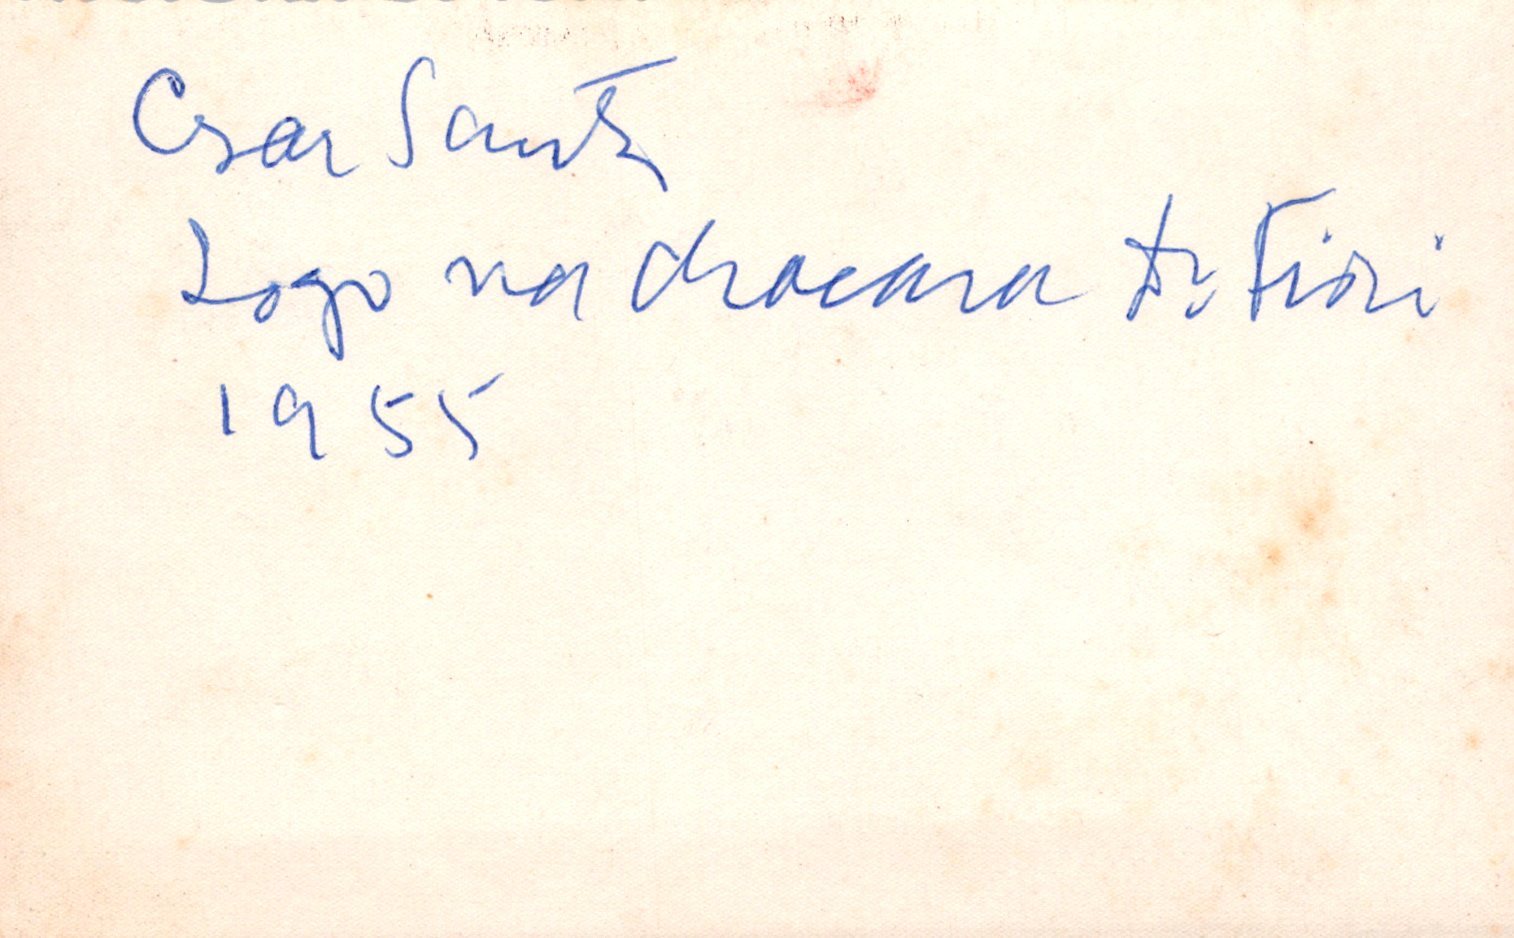 Cesar Santos
Logo na chacara Dr. Fiori
1955